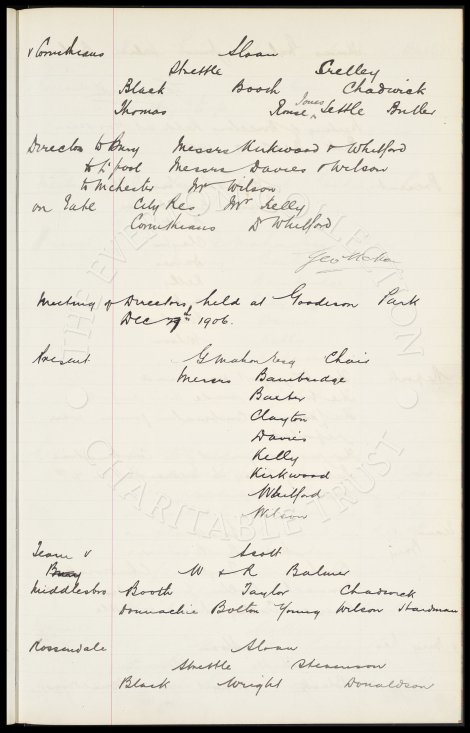 v Corinthians Sloan
Strettle Crelley
Black Booch Chadwick
Thomas Rouse Jones Settle Butler
Director to Bury Messrs Kirkwood & Whitford
to L'pool Messrs Davies & Wilson
to Mchester Mr Wilson
on Gate City Res Mr Kelly
Corinthians Dr Whitford
Geo Mahon
Meeting of Directors, held at Goodison Park
Dec 29th 1906.
Present G Mahon Esq Chair
Messrs Bainbridge
Baxter
Clayton
Davies
Kelly
Kirkwood
Whitford
Wilson
Team v Scott
Bury W & R Balmer
Middlesbro Booth Taylor Chadwick
Donnachie Bolton Young Wilson Hardman
Rossendale Sloan
Strettle Stevenson
Black Wright Donaldson
THE EVERTON COLLECTION
CHARITABLE TRUST